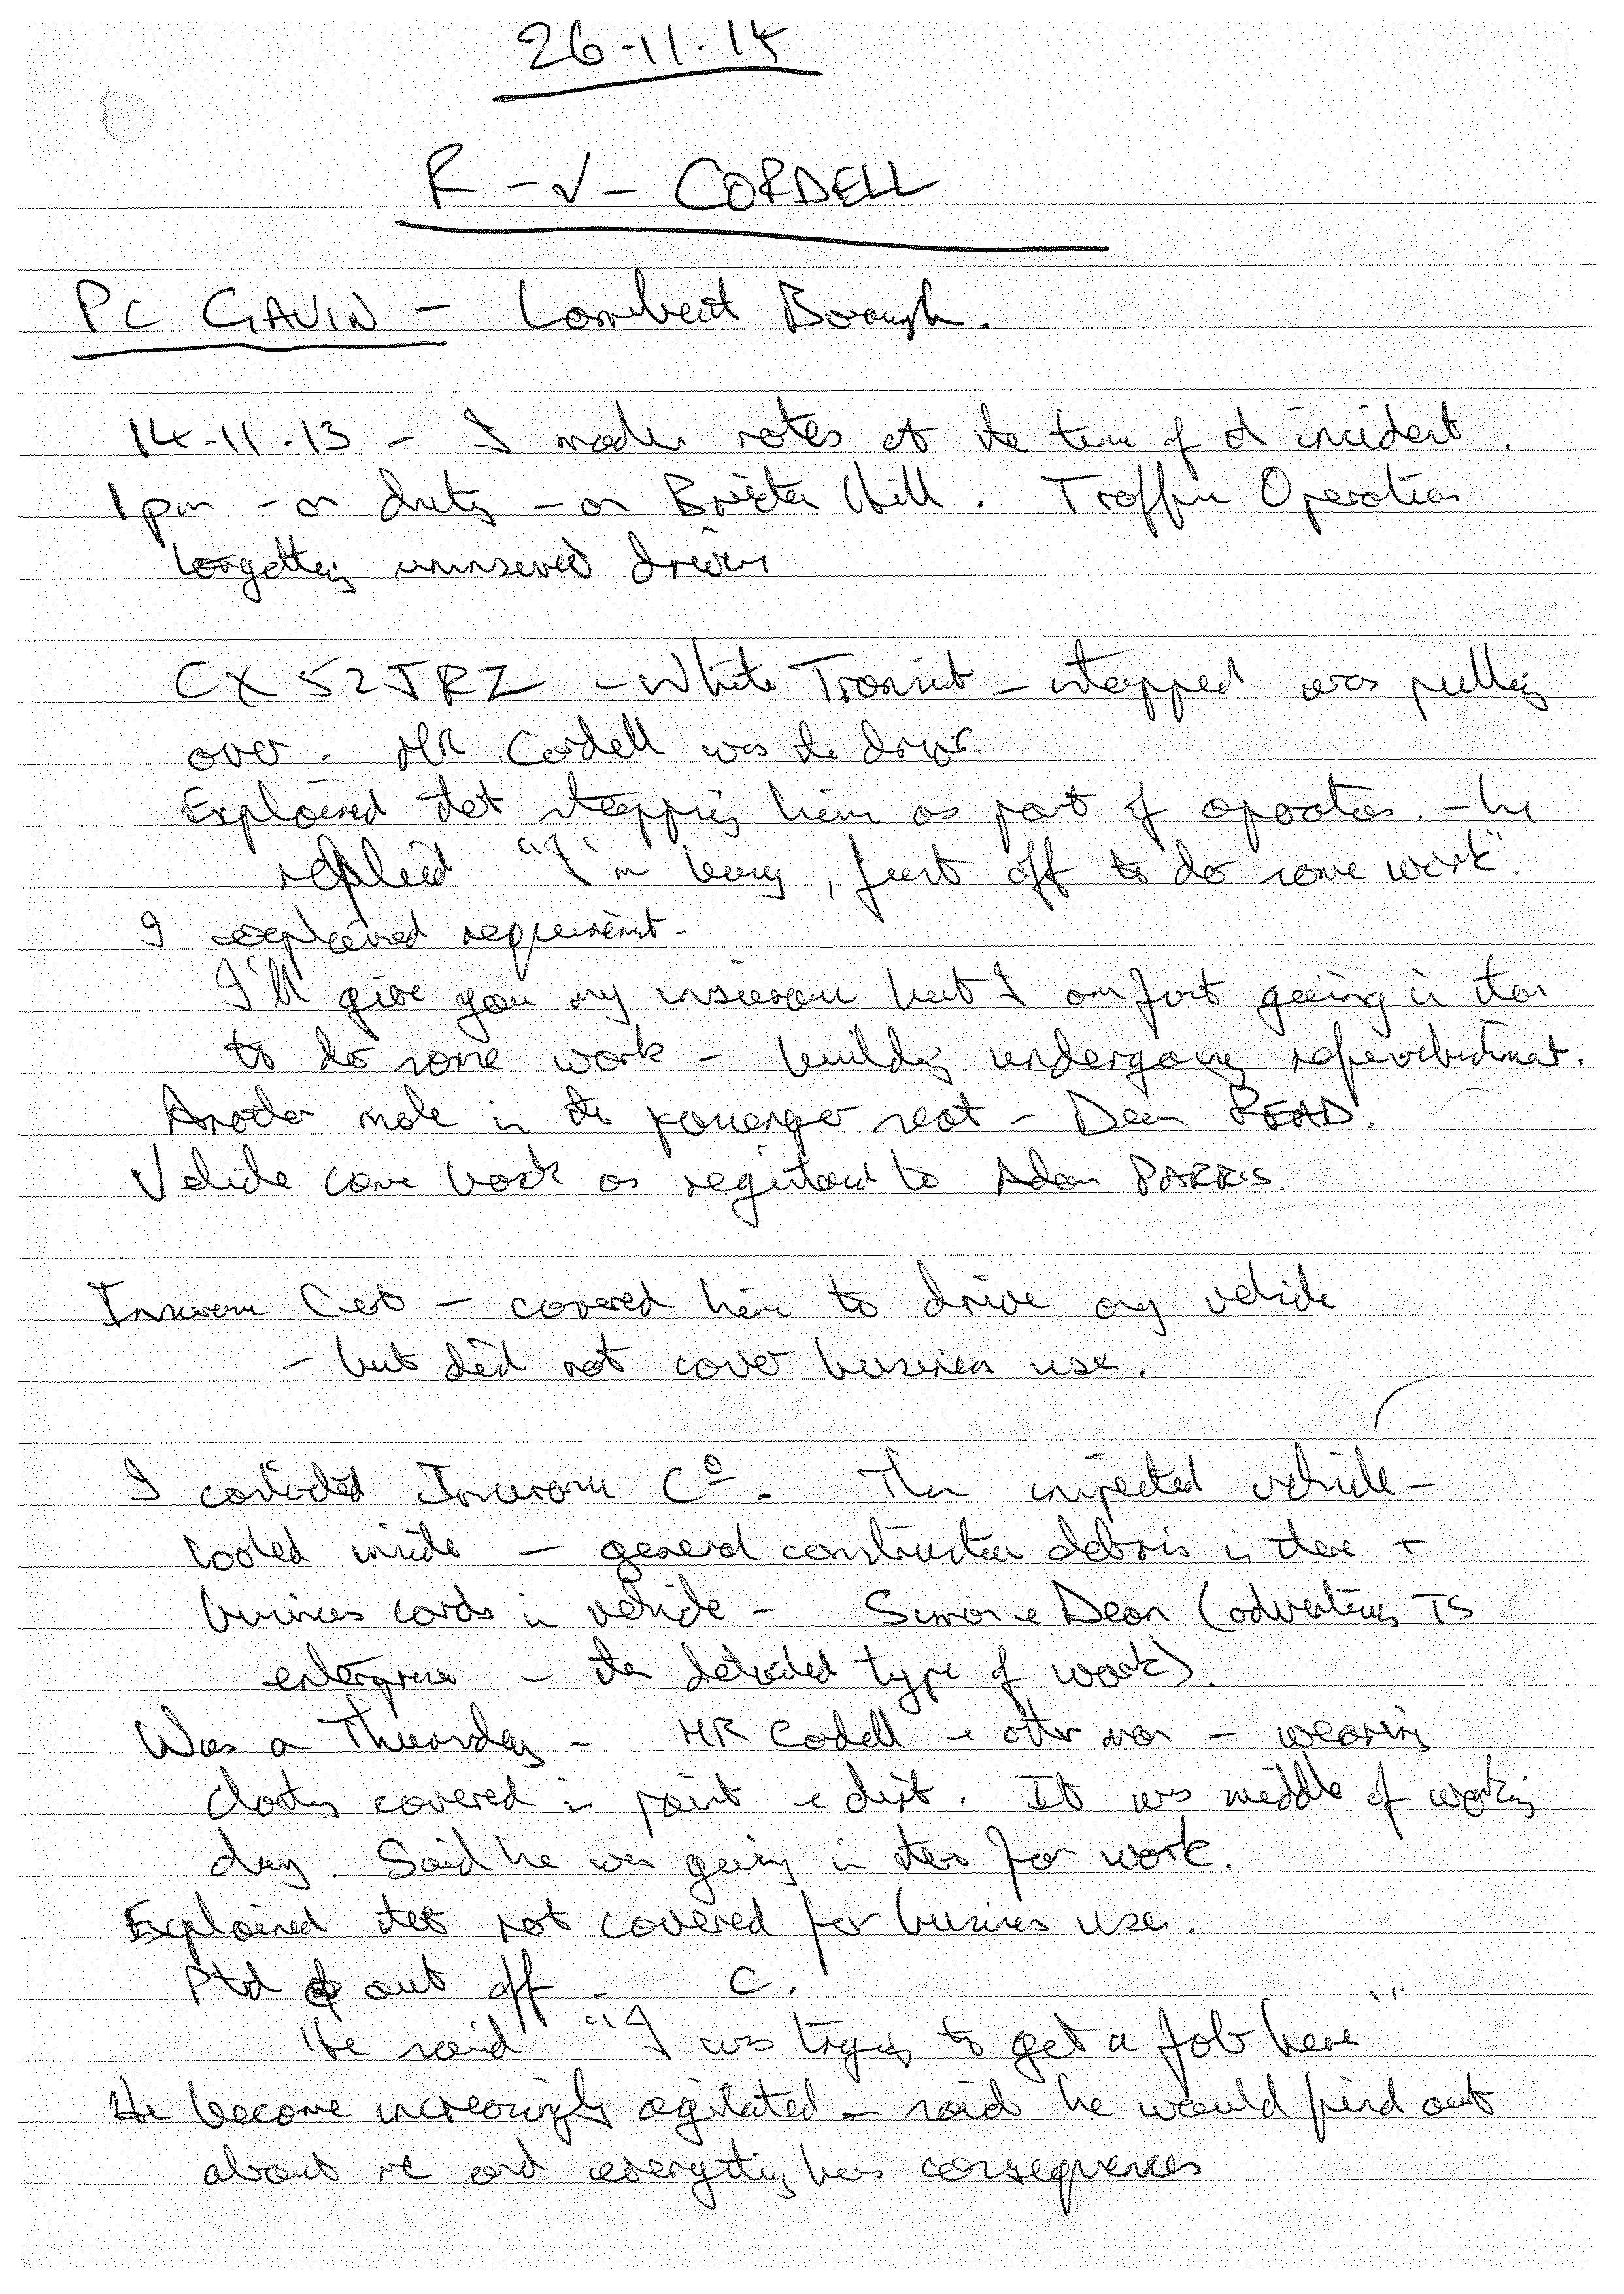 26-11-14
R -v- CORDELL
PC GAVIN - Lambeth Borough.
14-11-13 - I made notes at the time of incident.
1pm - on duty - on Brixton Hill. Traffic Operation
targetting uninsured drivers
CX52JRZ - White Transit - stopped was pulling
over. MR Cordell was the driver.
Explained that stopping him as part of operation. - he
replied "I'm busy, just off to do some work".
I explained requirement.
I'll give you my insurance but I am just going in there
to do some work - building undergoing refurbishment.
Another male in the passenger seat - Dean READ.
Vehicle came back as registered to Adam PARRIS.
Insurance Cert - covered him to drive any vehicle
- but did not cover business use.
I contacted Insurance Co. Then inspected vehicle -
looked inside - general construction debris in there +
business cards in vehicle - Simon + Dean (advertising TS
enterprise - the detailed type of work).
Was a Thursday - MR Cordell + other man - wearing
clothes covered in paint + dust. It was middle of working
day. Said he was going in there for work.
Explained that not covered for business use.
Ptd out off - C.
He said "I was trying to get a job here"
He became increasingly agitated - said he would find out
about me and everything has consequences